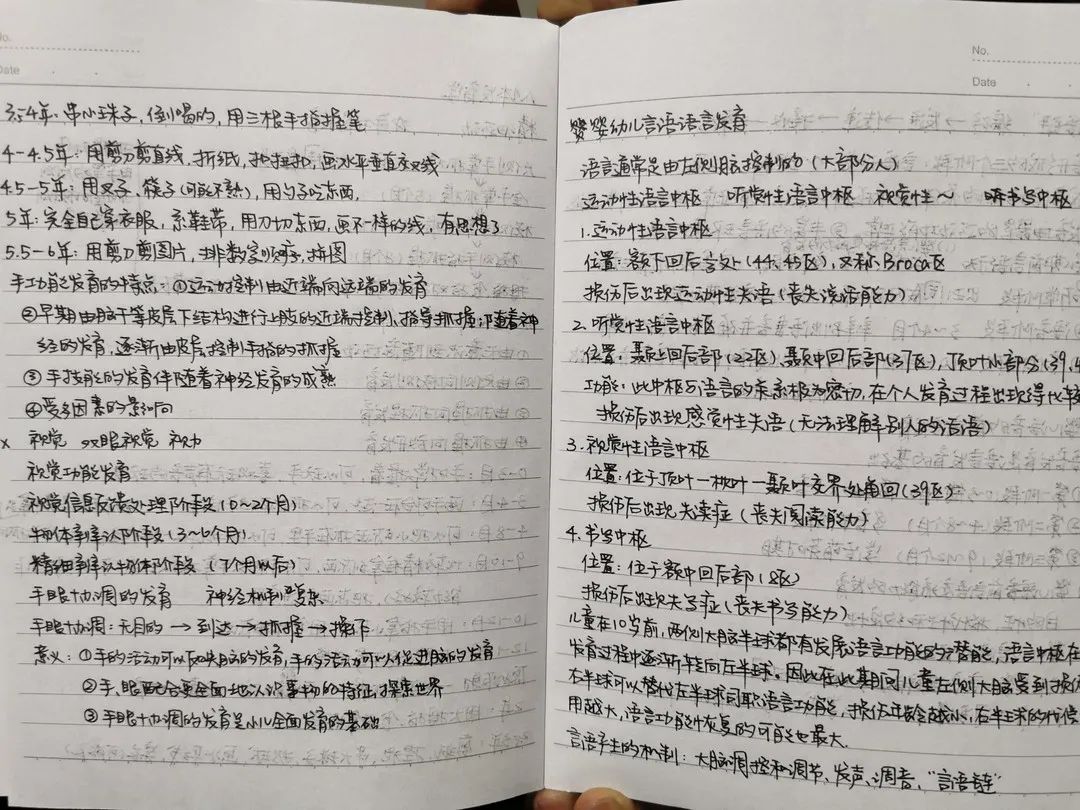 No.
Date
3.5-4年：串小珠子，倒喝的，用三根手指握笔
4-4.5年：用剪刀剪直线，折纸，扣纽扣，画水平垂直交叉线
4.5-5年：用叉子、筷子(可能不熟)，用勺子吃东西，
5年：完全自己穿衣服，系鞋带，用刀切东西，画不一样的线，有思想了
5.5-6年：用剪刀剪图片，排数字顺序，拼图
手功能发育的特点：①运动控制由近端向远端的发育
②早期由脑干等皮层下结构进行上肢的近端控制、指导抓握；随着神
经的发育，逐渐由皮层控制手指的抓握
③手技能的发育伴随着神经发育的成熟
④受多因素的影响
x 视觉 双眼视觉 视力
视觉功能发育
视觉信息反馈处理阶段(0~2个月)
物体辨认阶段(3~6个月)
精细辨认物体阶段(7个月以后)
手眼协调的发育 神经机制复杂
手眼协调：无目的→到达→抓握→操作
意义：①手的活动可以反映脑的发育，手的活动可以促进脑的发育
②手、眼配合更全面地认识事物的特征，探索世界
③手眼协调的发育是小儿全面发育的基础
No.
Date
婴幼儿言语语言发育
语言通常是由左侧脑控制的(大部分人)
运动性语言中枢 听觉性语言中枢 视觉性~ 书写中枢
1.运动性语言中枢
位置：额下回后部(44、45区)，又称Broca区
损伤后出现运动性失语(丧失说话能力)
2.听觉性语言中枢
位置：颞上回后部(22区)，颞中回后部(37区)，顶叶小部分(39、4
功能：此中枢与语言的关系极为密切，在个人发育过程出现得比较
损伤后出现感觉性失语(无法理解别人的话语)
3.视觉性语言中枢
位置：位于顶叶-枕叶-颞叶交界处角回(39区)
损伤后出现失读症(丧失阅读能力)
4.书写中枢
位置：位于额中回后部(8区)
损伤后出现失写症(丧失书写能力)
儿童在10岁前，两侧大脑半球都有发展语言功能的潜能，语言中枢在
发育过程中逐渐转向左半球。因此在此期间儿童左侧大脑受到损伤
右半球可以替代左半球司职语言功能，损伤年龄越小，右半球的代偿
用越大，语言功能恢复的可能也最大
言语产生的机制：大脑调控和调节、发声、调音，“言语链”